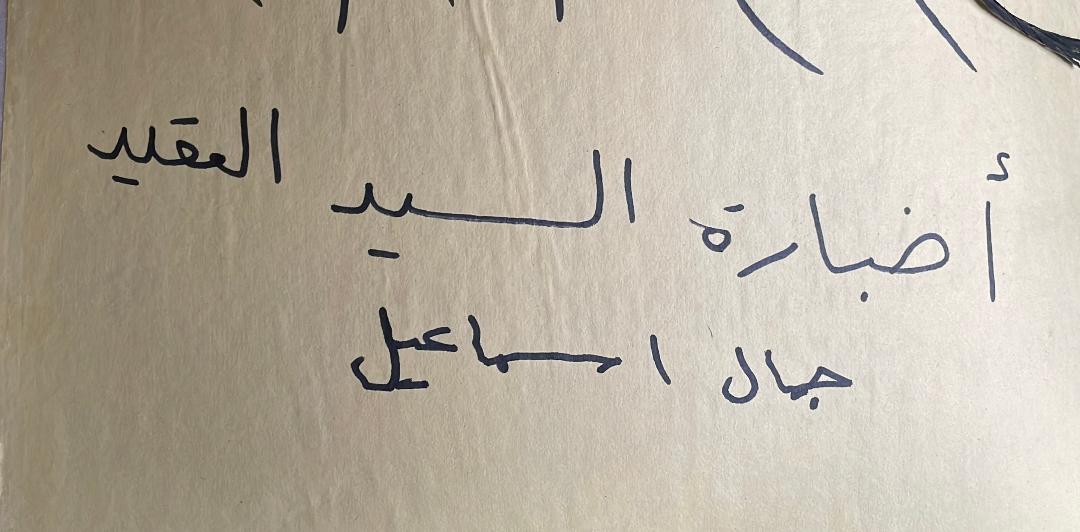 أضبارة السيد العقيد
جمال اسماعيل